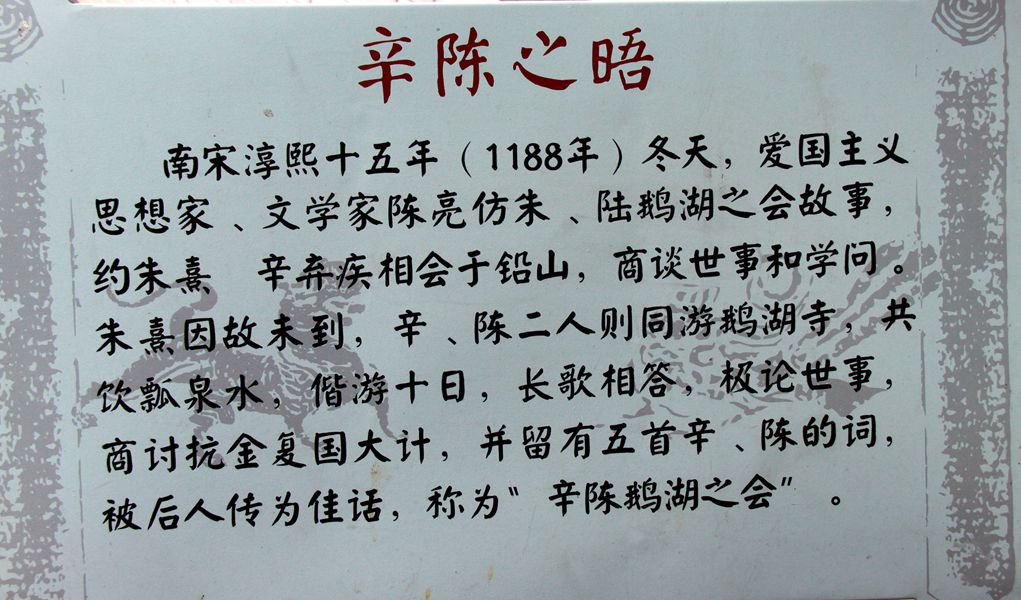 辛陈之晤
南宋淳熙十五年（1188年）冬天，爱国主义
思想家、文学家陈亮仿朱、陆鹅湖之会故事，
约朱熹 辛弃疾相会于铅山，商谈世事和学问。
朱熹因故未到，辛、陈二人则同游鹅湖寺，共
饮瓢泉水，偕游十日，长歌相答，极论世事，
商讨抗金复国大计，并留有五首辛、陈的词，
被后人传为佳话，称为“辛陈鹅湖之会”。